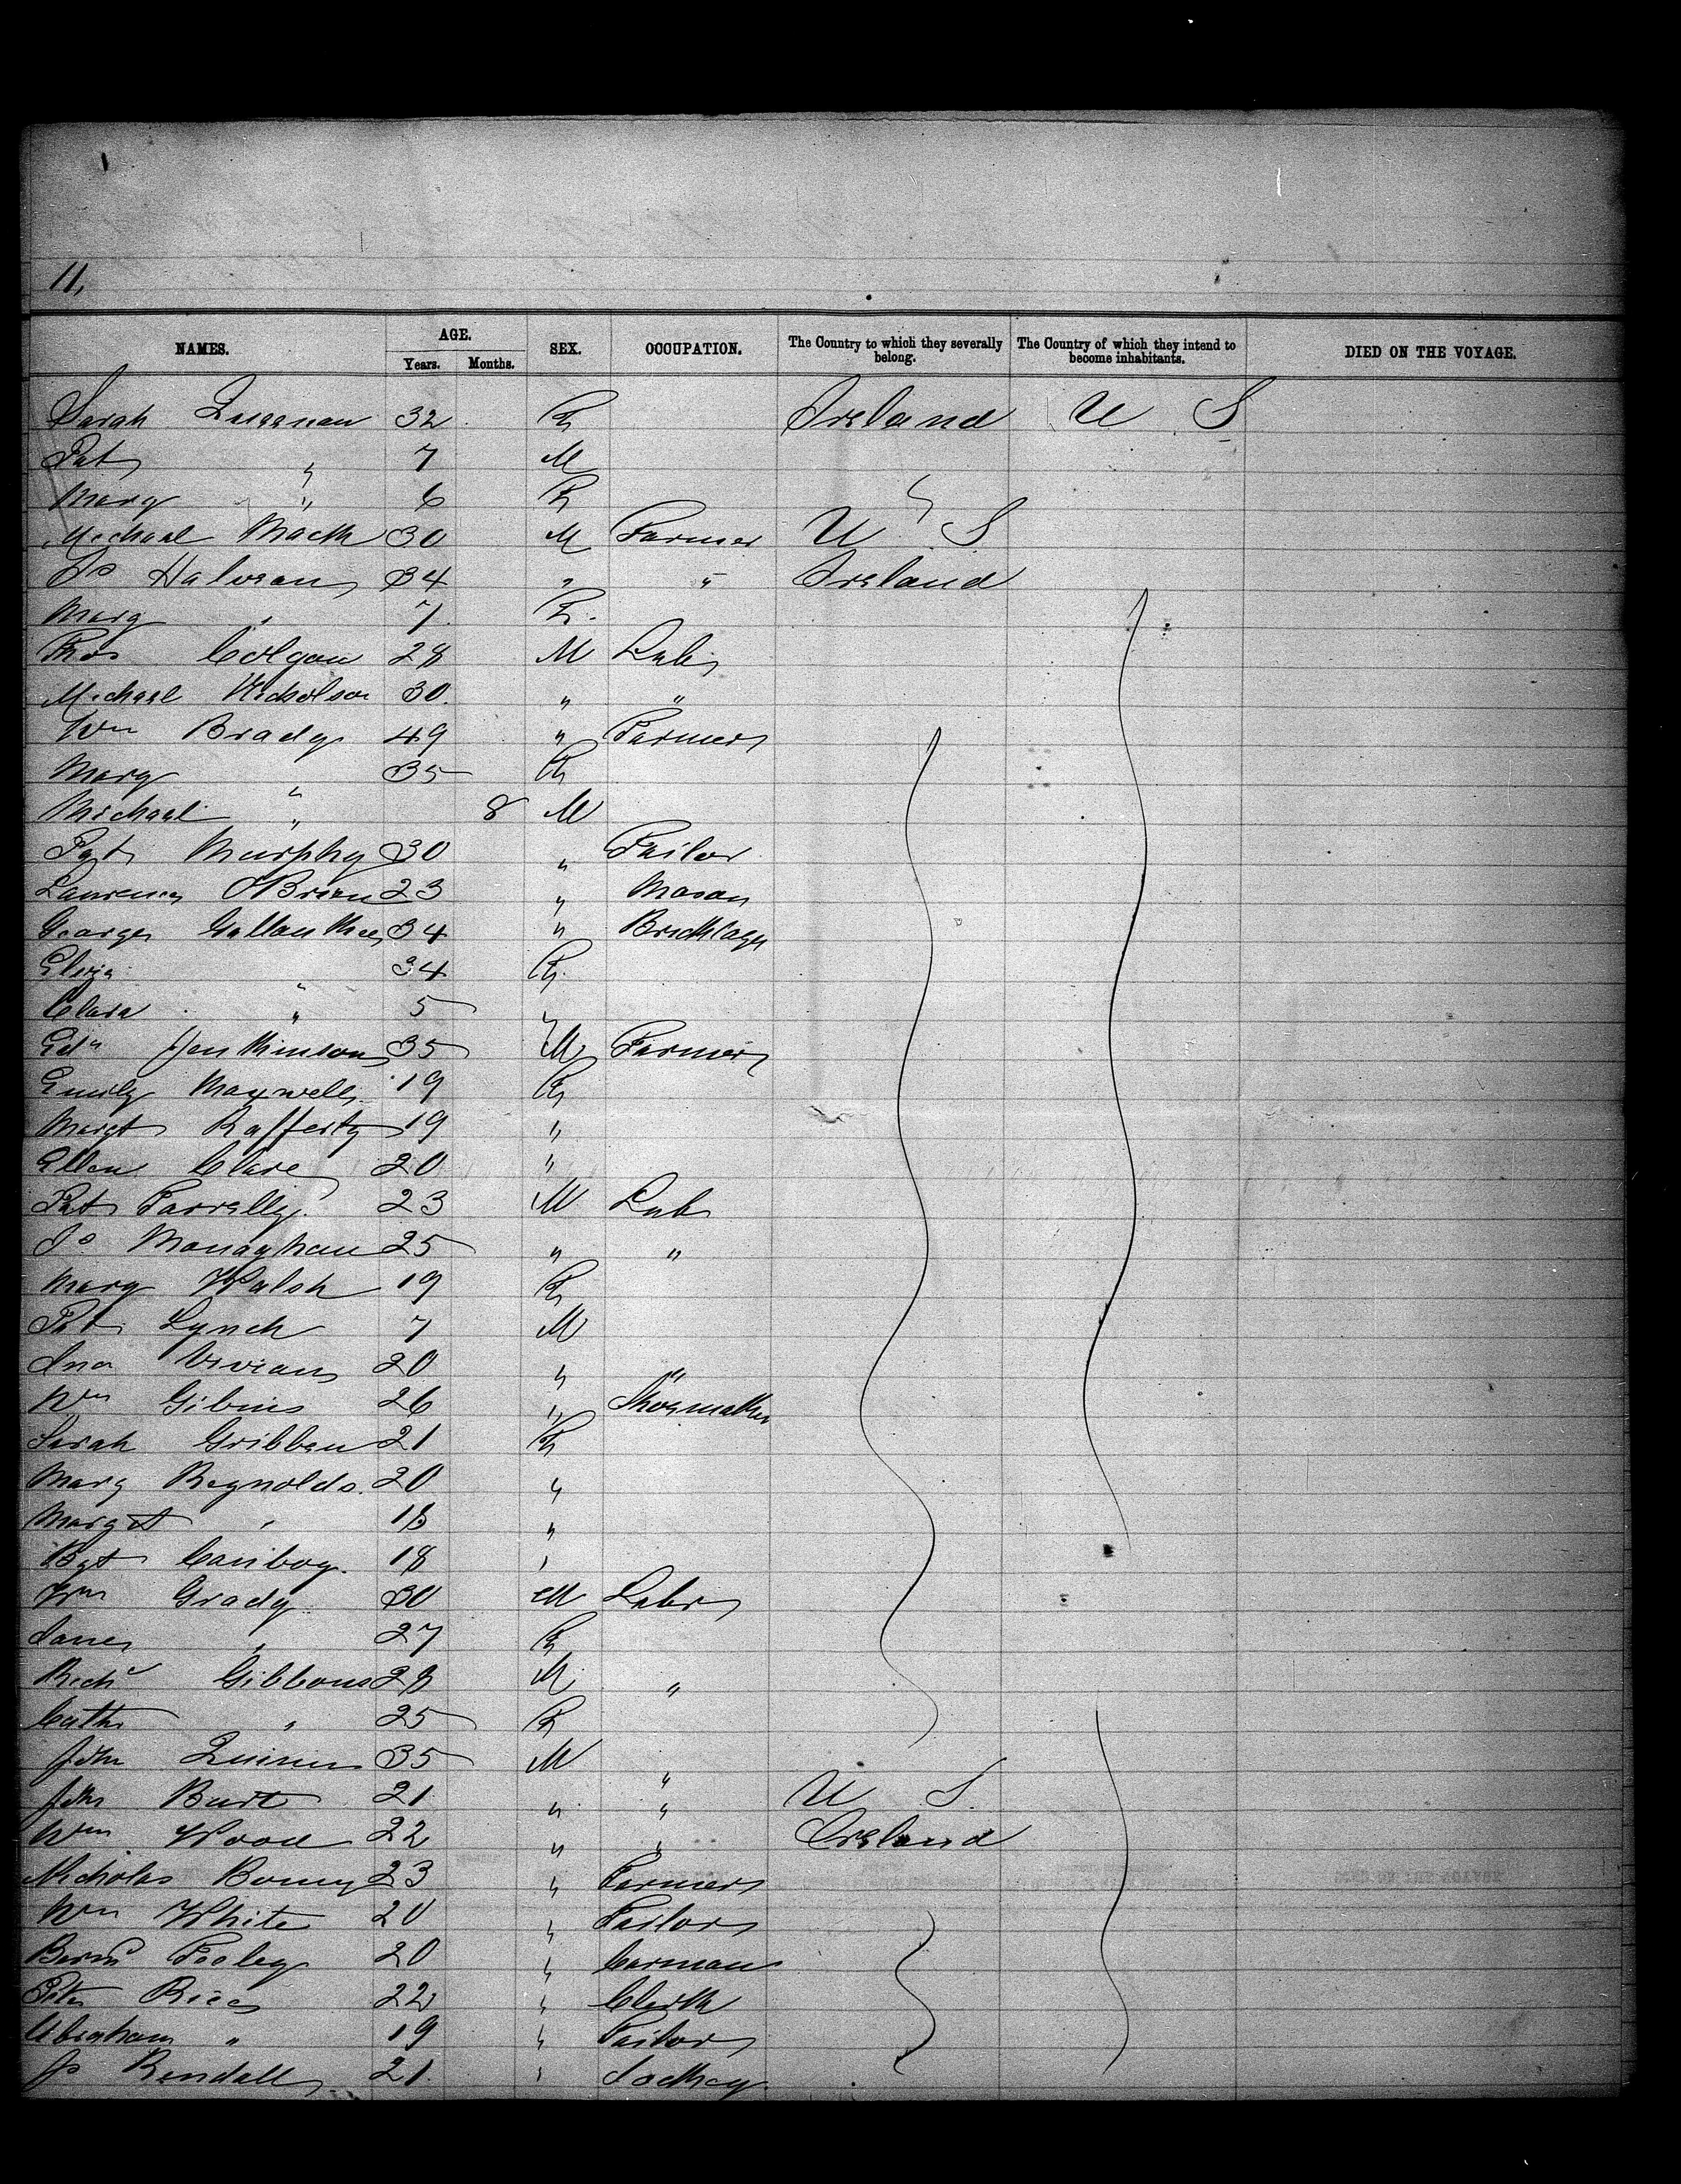 11,
NAMES. AGE. Years. Months. SEX. OCCUPATION. The Country to which they severally belong. The Country of which they intend to become inhabitants. DIED ON THE VOYAGE.
Sarah 32 F Ireland U S
Pat " 7 M
Mary " 6 F
Michael Mack 30 M Farmer U S
Js Halvoran 34 " " Ireland
Mary " 7 F
Thos Colgan 28 M Lab
Michael Nicholson 30 " "
Wm Brady 49 " Farmer
Mary " 35 F
Michael " 8 M
Pat Murphy 30 " Tailor
Laurence O'Brien 23 " Mason
George 34 " Bricklayer
Eliza " 34 F
Clara " 5 "
Edn Jenkinson 35 M Farmer
Emily Maxwell 19 F
Margt Rafferty 19 "
Ellen Clare 20 "
Pat Farrelly 23 M Lab
Js Monaghan 25 " "
Mary Walsh 19 F
Pat Lynch 7 M
Jno Vivian 20 " "
Wm Gibins 26 " Shoemaker
Sarah Gribben 21 F
Mary Reynolds 20 "
Margt " 18 "
Bgt 18 "
Wm Grady 30 M Labr
Jane " 27 F
Richd Gibbons 28 M "
Cath " 25 F
John Quinn 35 M "
John Burt 21 " " U S
Wm Wood 22 " " Ireland
Nicholas 23 " Farmer
Wm White 20 " Tailor
Bernd Fooley 20 " Carman
Peter Rice 22 " Clerk
Abraham " 19 " Tailor
Js Rendall 21 " Jockey